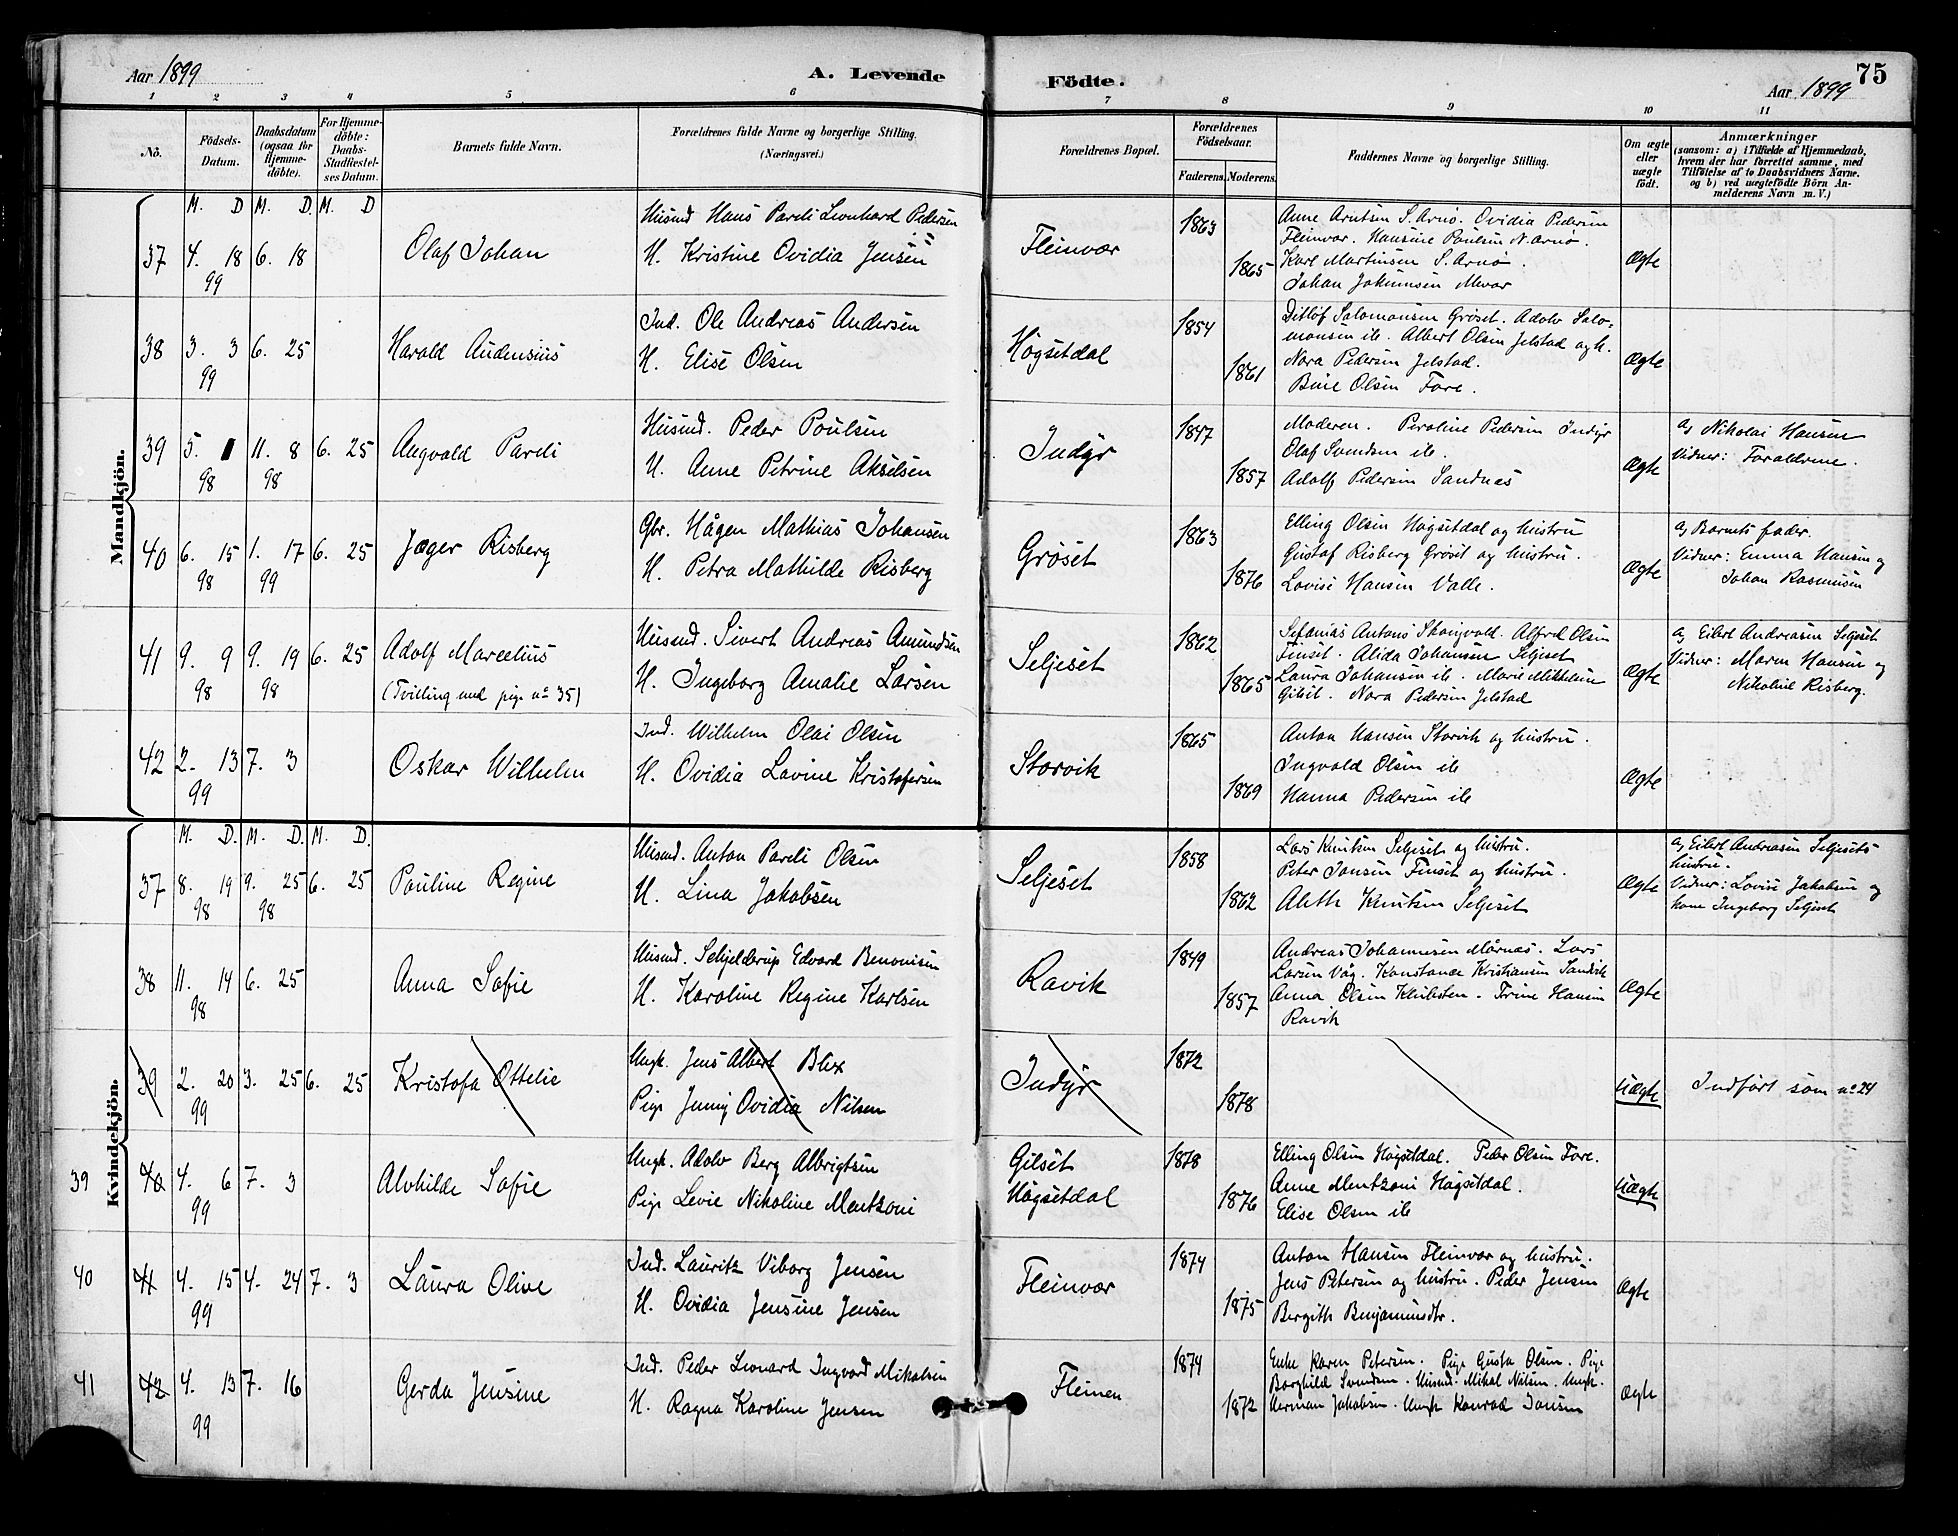 Aar 1899
A. Levende
Födte.
75
Aar 1899
1 2 3 4 5 6 7 8 9 10 11
No.
Födsels-
Datum.
Daabsdatum
(ogsaa for
Hjemme-
döbte).
For Hjemme-
döbte:
Daabs-
Stadfæstel-
ses Datum.
Barnets fulde Navn.
Forældrenes fulde Navne og borgerlige Stilling.
(Næringsvei.)
Forældrenes Bopæl.
Forældrenes
Födselsaar.
Faderens. Moderens.
Faddernes Navne og borgerlige Stilling.
Om ægte
eller
uægte
födt.
Anmærkninger
(saasom: a) i Tilfælde af Hjemmedaab,
hvem der har forrettet samme, med
Tilföielse af to Daabsvidners Navne,
og b) ved uægtefödte Börn An-
melderens Navn m. V.)
Mandkjön.
M. D M. D. M. D
37 4. 18 6. 18
99
Olaf Johan
Husmd Hans Pareli Leonhard Pedersen
H. Kristine Ovidia Jensen
Fleinvær
1863
1865
Anne Arntsen S. Arnø. Ovidia Pedersen
Fleinvær. Hansine Poulsen N. Arnø.
Karl Martinsen S. Arnø.
Johan Johannsen
Ægte
38 3. 3 6. 25
99
Harald Audensius
Ind. Ole Andreas Andersen
H. Elise Olsen
Høgsetdal
1854
1861
Ditlöf Salomonsen Grøset. Adolv Salo-
monsen ib. Albert Olsen Jelstad og h.
Nora Pedersen Jelstad.
Bine Olsen Fore.
Ægte
39 5. 1 11. 8 6. 25
98 98
Angvald Pareli
Husmd. Peder Poulsen
H. Anne Petrine Akselsen
Indyr
1847
1857
Moderen. Peroline Pedersen Indyr
Olaf Svendsen ib.
Adolf Pedersen Sandnes
Ægte
a, Nikolai Hansen
Vidner: Forældrene.
40 6. 15 1. 17 6. 25
98 99
Jæger Risberg
Gbr. Hågen Mathias Johansen
H. Petra Mathilde Risberg
Grøset
1863
1876
Elling Olsen Høgsetdal og hustru
Gustaf Risberg Grøset og hustru.
Lovise Hansen Valle.
Ægte
a, Barnets fader.
Vidner: Emma Hansen og
Johan Rasmussen
41 9. 9 9. 19 6. 25
98 98
Adolf Marcelius
(Tvilling med pige no 35)
Husmd. Sivert Andreas Amundsen
H. Ingeborg Amalie Larsen
Seljeset
1862
1865
Sefanias Antons Skongvold. Alfred Olsen
Finset. Alida Johansen Seljeset
Laura Johansen ib. Marie Mikkelsen
Gilset. Nora Pedersen Jelstad
Ægte
a, Eilert Andreasen Seljeset
Vidner: Maren Hansen og
Nikoline Risberg.
42 2. 13 7. 3
99
Oskar Wilhelm
Ind. Wilhelm Olai Olsen
H. Ovidia Lovine Kristofersen
Storvik
1865
1869
Anton Hansen Storvik og hustru.
Ingvald Olsen ib
Hanna Pedersen ib
Ægte
Kvindekjön.
M. D. M. D. M. D.
37 8. 19 9. 25 6. 25
98 98
Pauline Regine
Husmd. Anton Pareli Olsen
H. Lina Jakobsen
Seljeset
1858
1862
Lars Knutsen Seljeset og hustru.
Peter Jansen Finset og hustru.
Aleth Knutsen Seljeset
Ægte
a, Eilert Andreasen Seljesets
hustru.
Vidner: Lovise Jakobsen og
kone Ingeborg Seljeset
38 11. 14 6. 25
98
Anna Sofie
Husmd. Schjelderup Edvard Benonisen
H. Karoline Regine Karlsen
Ravik
1849
1857
Andreas Johannesen Mårnæs. Lars
Larsen Våg. Konstanse Kristiansen Sandvik
Anna Olsen. Trine Hansen
Ravik
Ægte
39 2. 20 3. 25 6. 25
99
Kristofa Ottelie
Ungk. Jens Albert Blix
Pige Jenny Ovidia Nilsen
Indyr
1872
1878
Uægte
Indført som no 24
39 40 4. 6 7. 3
99
Alvhilde Sofie
Ungk. Adolv Berg Albrigtsen
Pige Levie Nikoline Mentzoni
Gilset
Høgsetdal
1878
1876
Elling Olsen Høgsetdal. Peder Olsen Fore.
Anne Mentzoni Høgsetdal.
Elise Olsen ib
Uægte
40 41 4. 15 4. 24 7. 3
99
Laura Olive
Ind. Lauritz Viborg Jensen
H. Ovidia Jensine Jensen
Fleinvær
1874
1875
Anton Hansen Fleinvær og hustru.
Jens Petersen og hustru. Peder Jensen
Bergith Benjaminsdtr.
Ægte
41 42 4. 13 7. 16
99
Gerda Jensine
Ind. Peder Leonard Ingvard Mikalsen
H. Ragna Karoline Jensen
Fleinen
1874
1872
Enke Karen Petersen. Pige Gusta Olsen. Pige
Borghild Svendsen. Husmd. Mikal Nilsen. Ungk.
Herman Jakobsen. Ungk Konrad Jansen
Ægte